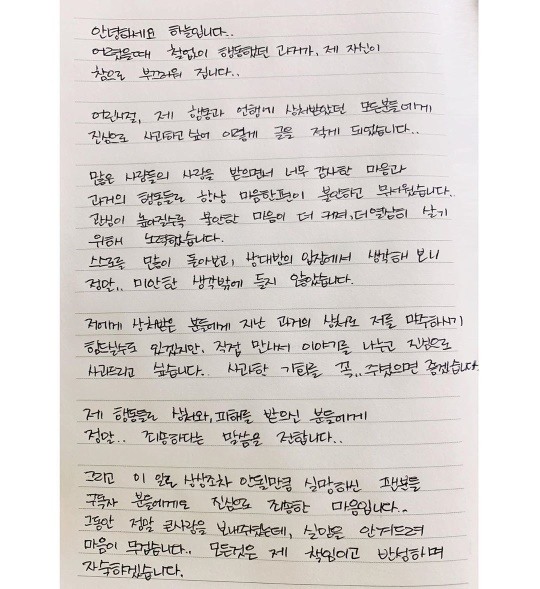 안녕하세요 하늘입니다..
어렸을때 철없이 행동했던 과거가, 제 자신이
참으로 부끄러워 집니다..
어린시절, 제 행동과 언행에 상처받았던 모든분들에게
진심으로 사과하고 싶어 이렇게 글을 적게 되었습니다..
많은 사람들의 사랑을 받으면서 너무 감사한 마음과
과거의 행동들로 항상 마음한편이 불안하고 무서웠습니다..
관심이 높아질수록 불안한 마음이 더 커며, 더 열심히 살기
위해 노력했습니다.
스스로를 많이 돌아보고, 상대방의 입장에서 생각해 보니
정말.. 미안한 생각밖에 들지 않았습니다.
저에게 상처받은 분들에게 지난 과거의 상처로 저를 마주하시기
힘드실수도 있겠지만, 직접 만나서 이야기를 나누고 진심으로
사과드리고 싶습니다.. 사과할 기회를 꼭.. 주셨으면 좋겠습니다.
제 행동들로 상처와, 피해를 받으신 분들에게
정말.. 죄송하다는 말씀을 전합니다..
그리고 이 일로 상상조차 안될만큼 실망하신 팬분들
구독자 분들에게도 진심으로 죄송한 마음입니다..
그동안 정말 큰사랑을 보내주셨는데, 실망을 안겨드려
마음이 무겁습니다.. 모든것은 제 책임이고 반성하며
자숙하겠습니다.